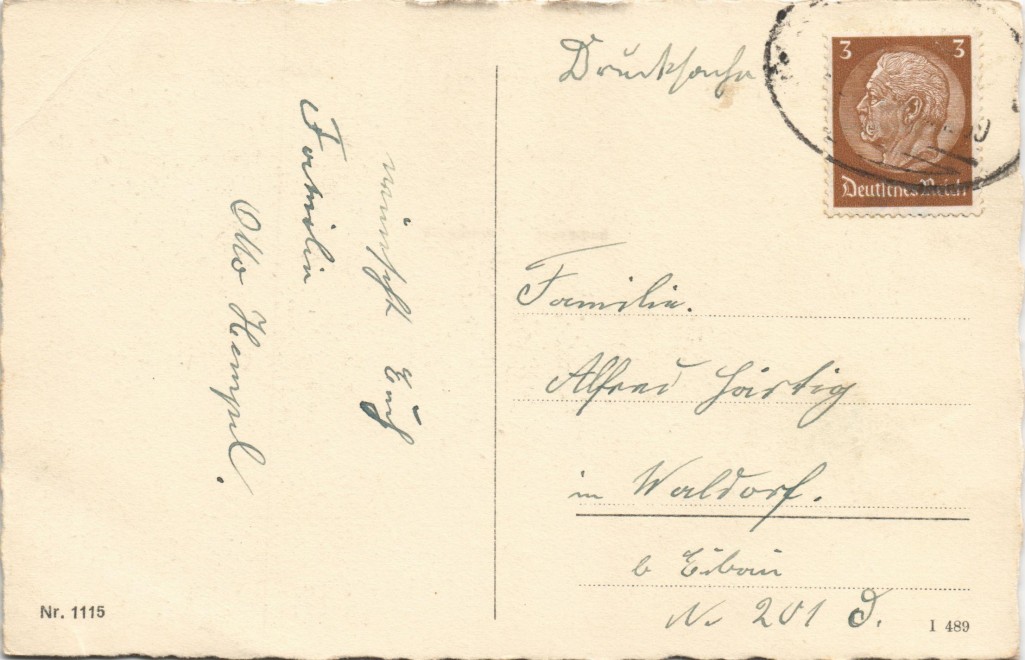 wünscht Euch
Familie
Otto Hempel.
Drucksache
3 3
Deutsches Reich
Familie.
Alfred Härtig
in Waldorf.
b Eibau
N. 201 d.
Nr. 1115
I 489